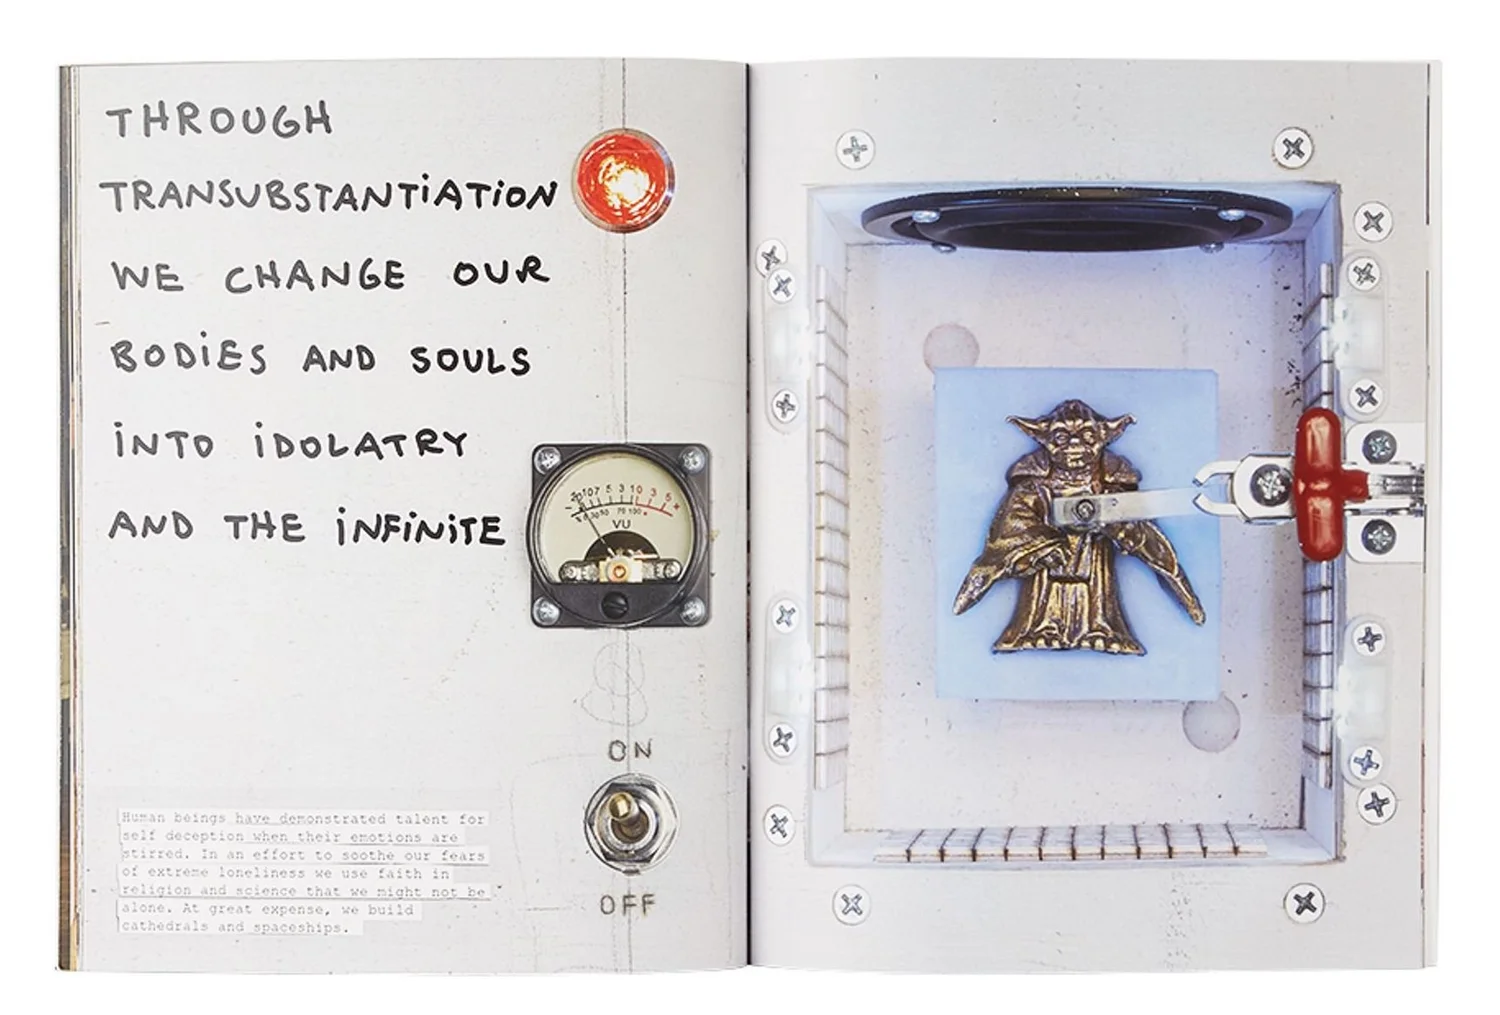 THROUGH
TRANSUBSTANTiATiON
WE CHANGE OUR
BODiES AND SOULS
iNTO iDOLATRY
AND THE iNFiNiTE
VU
ON
OFF
Human beings have demonstrated talent for
self deception when their emotions are
stirred. In an effort to soothe our fears
of extreme loneliness we use faith in
religion and science that we might not be
alone. At great expense, we build
cathedrals and spaceships.